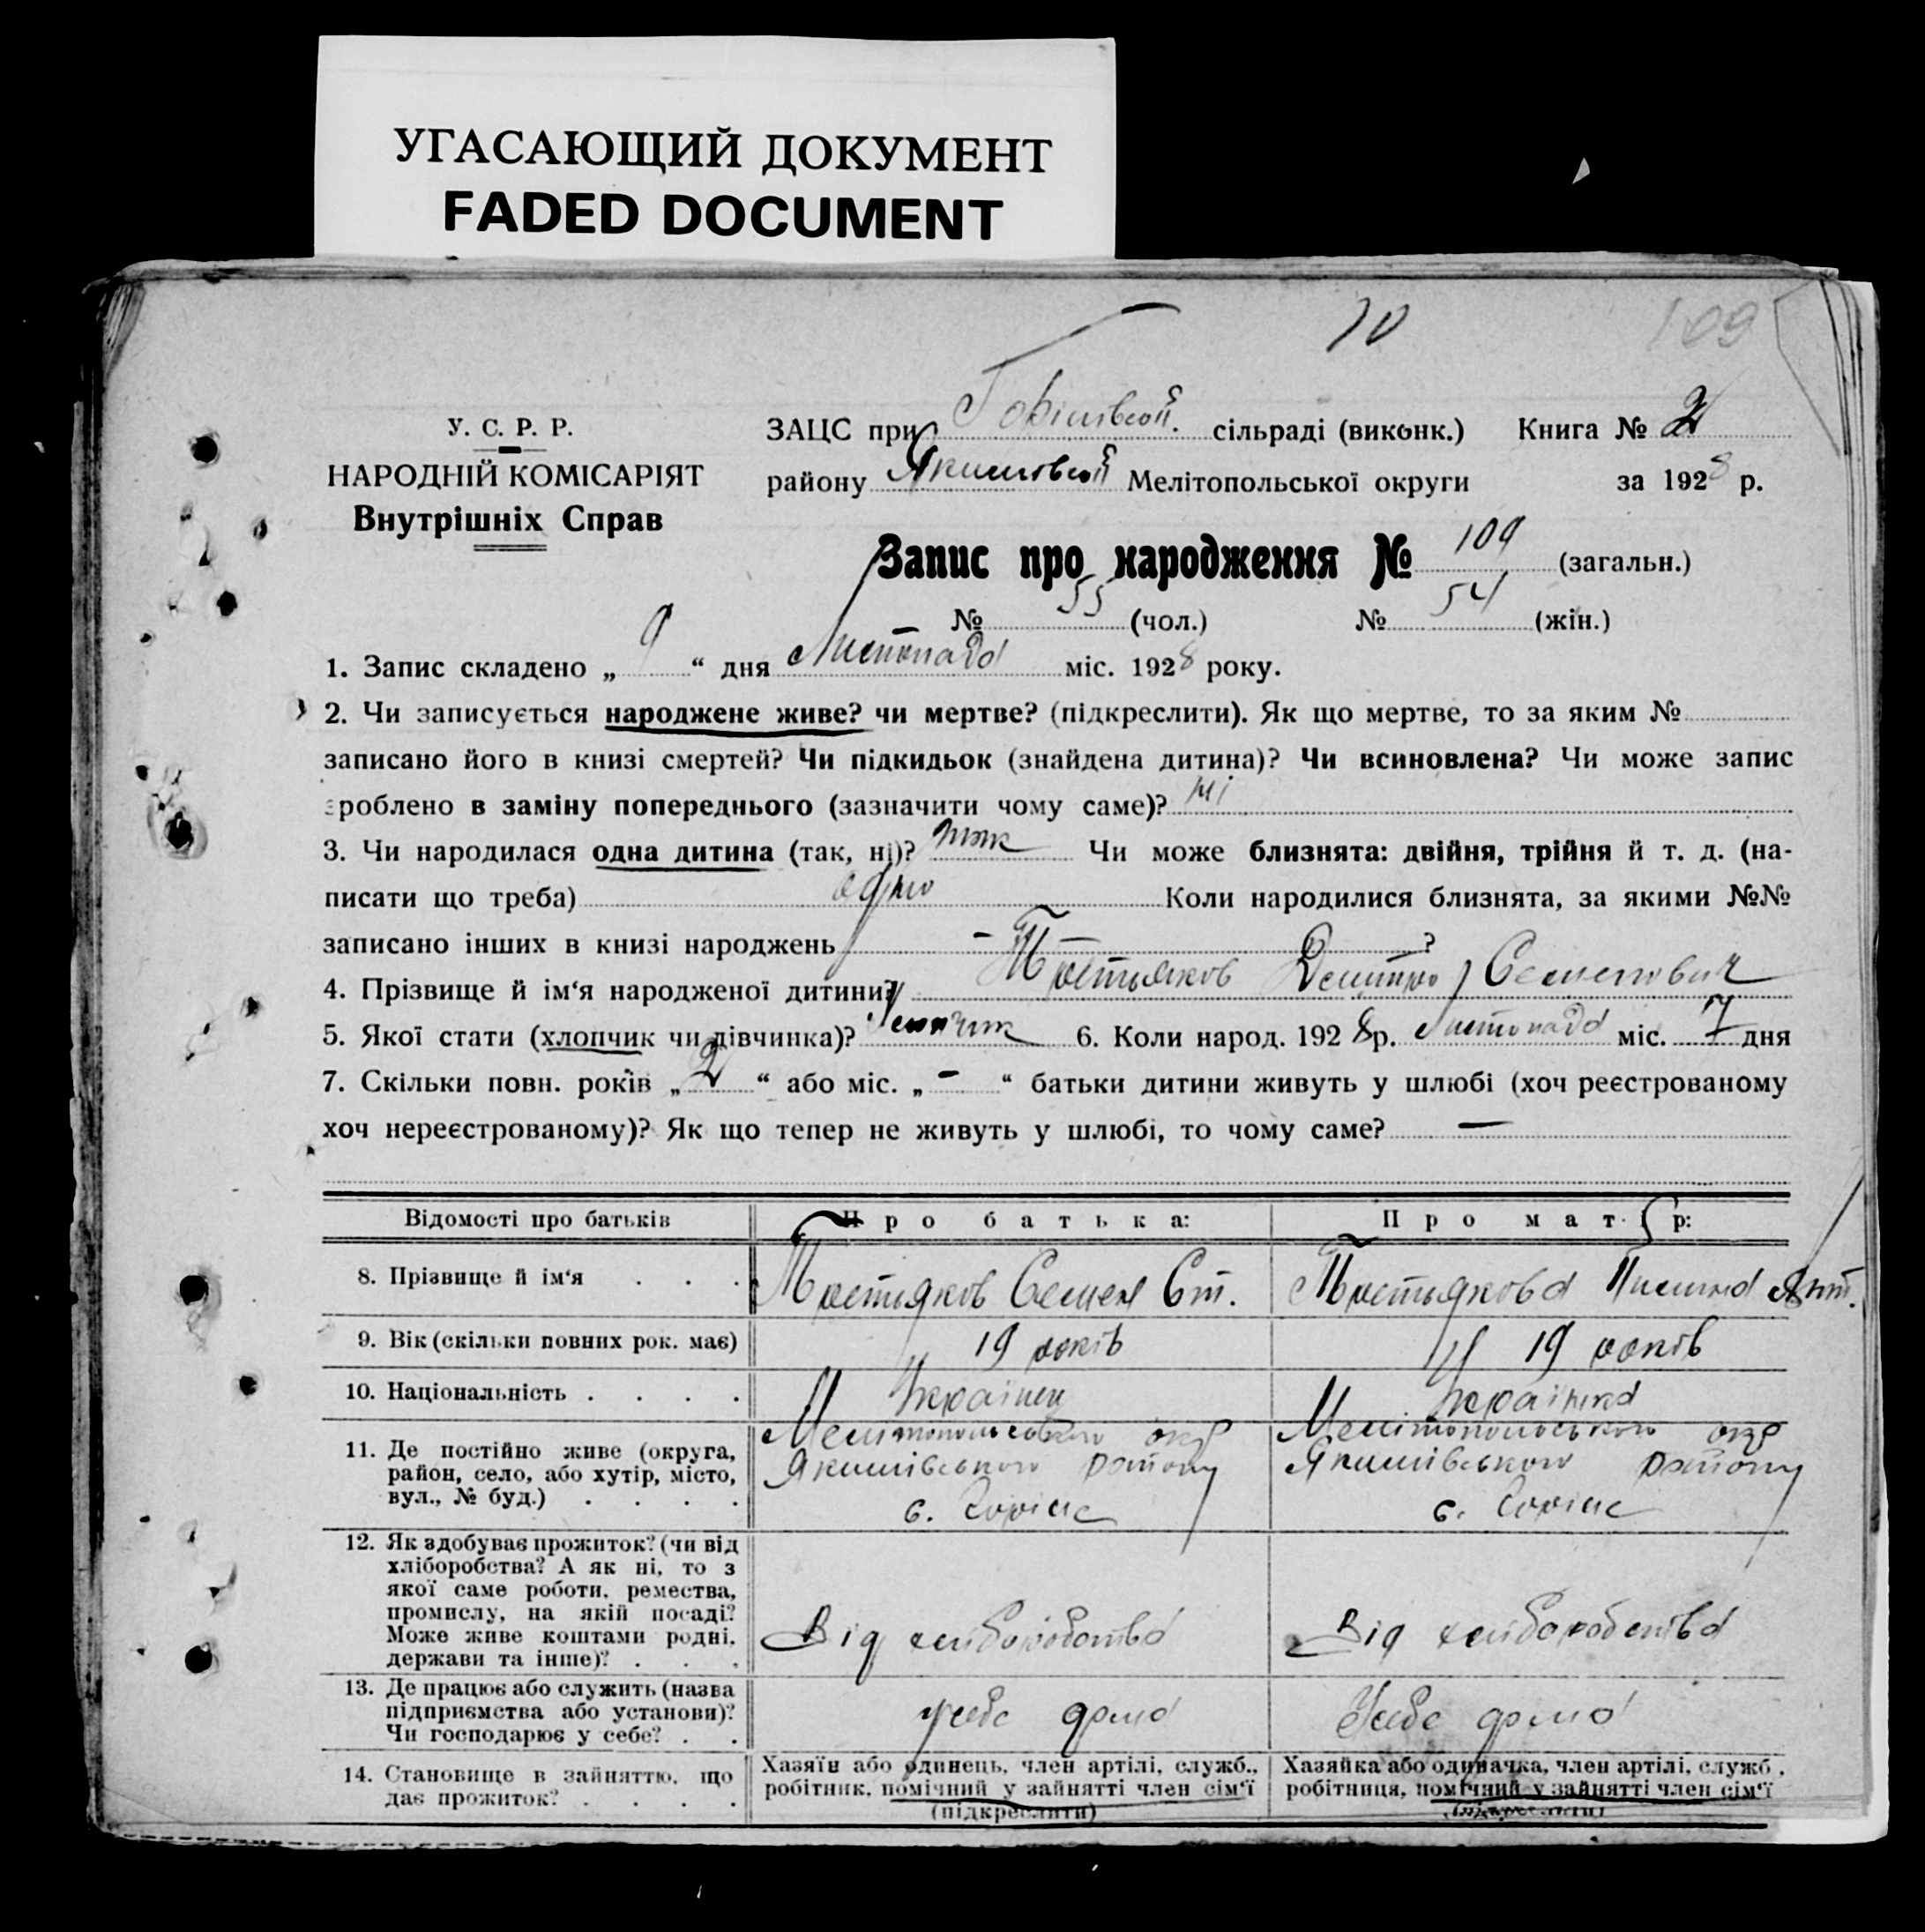 УГАСАЮЩИЙ ДОКУМЕНТ
FADED DOCUMENT
10 109
У. С. Р. Р.
НАРОДНІЙ КОМІСАРІЯТ
Внутрішніх Справ
ЗАЦС при сільраді (виконк.) Книга № 2
району Якимівської Мелітопольської округи за 1928 р.
Запис про народження № 109 (загальн.)
№ 55 (чол.) № 54 (жін.)
1. Запис складено „ 9 “ дня Листопада міс. 1928 року.
2. Чи записується народжене живе? чи мертве? (підкреслити). Як що мертве, то за яким №
записано його в книзі смертей? Чи підкидьок (знайдена дитина)? Чи всиновлена? Чи може запис
зроблено в заміну попереднього (зазначити чому саме)? ні
3. Чи народилася одна дитина (так, ні)? так Чи може близнята: двійня, трійня й т. д. (на-
писати що треба) одно Коли народилися близнята, за якими №№
записано інших в книзі народжень — ?
4. Прізвище й ім‘я народженої дитини? Третьяков Дмитро Семенович
5. Якої стати (хлопчик чи дівчинка)? 6. Коли народ. 1928 р. Листопада міс. 7 дня
7. Скільки повн. років „ 2 “ або міс. „ - “ батьки дитини живуть у шлюбі (хоч реєстрованому
хоч нереєстрованому)? Як що тепер не живуть у шлюбі, то чому саме? —
Відомості про батьків Про батька: Про матір:
8. Прізвище й ім‘я . . . Третьяков Семен Ст. Третьякова
9. Вік (скільки повних рок. має) 19 років 19 років
10. Національність . . . . Українец Українка
11. Де постійно живе (округа, Мелітопольського окр Мелітопольського окр
район, село, або хутір, місто, Якимівського району Якимівського району
вул., № буд.) . . . . с. с.
12. Як здобуває прожиток? (чи від
хліборобства? А як ні, то з
якої саме роботи, ремества,
промислу, на якій посаді?
Може живе коштами родні, Від хліборобства Від хліборобства
держави та інше)? . . .
13. Де працює або служить (назва
підприємства або установи)? У себе дома У себе дома
Чи господарює у себе? . .
14. Становище в зайняттю, що Хазяїн або одинець, член артілі, служб., Хазяйка або одиначка, член артілі, служб.,
дає прожиток? . . . . робітник, помічний у зайнятті член сім‘ї робітниця, помічний у зайнятті член сім‘ї
(підкреслити) (підкреслити)